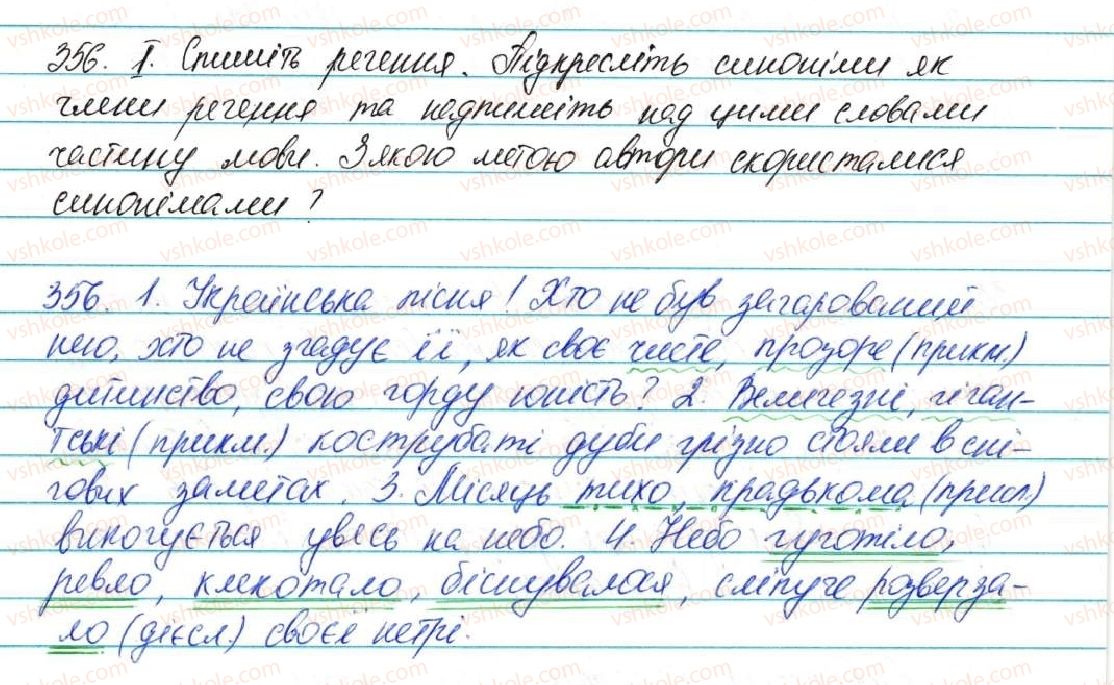 356. I. Спишіть речення. Підкресліть синоніми як
члени речення та надпишіть над цими словами
частину мови. З якою метою автори скористалися
синонімами?
356. 1. Українська пісня! Хто не був зачарований
нею, хто не згадує її, як своє чисте, прозоре (прикм.)
дитинство, свою горду юність? 2. Величезні, гіган-
тські (прикм.) кострубаті дуби грізно стояли в сні-
гових заметах. 3. Місяць тихо, крадькома (присл.)
викочується увесь на небо. 4. Небо гуготіло,
ревло, клекотало, біснувалося, сліпуче розверза-
ло (дієсл.) своєї нетрі.